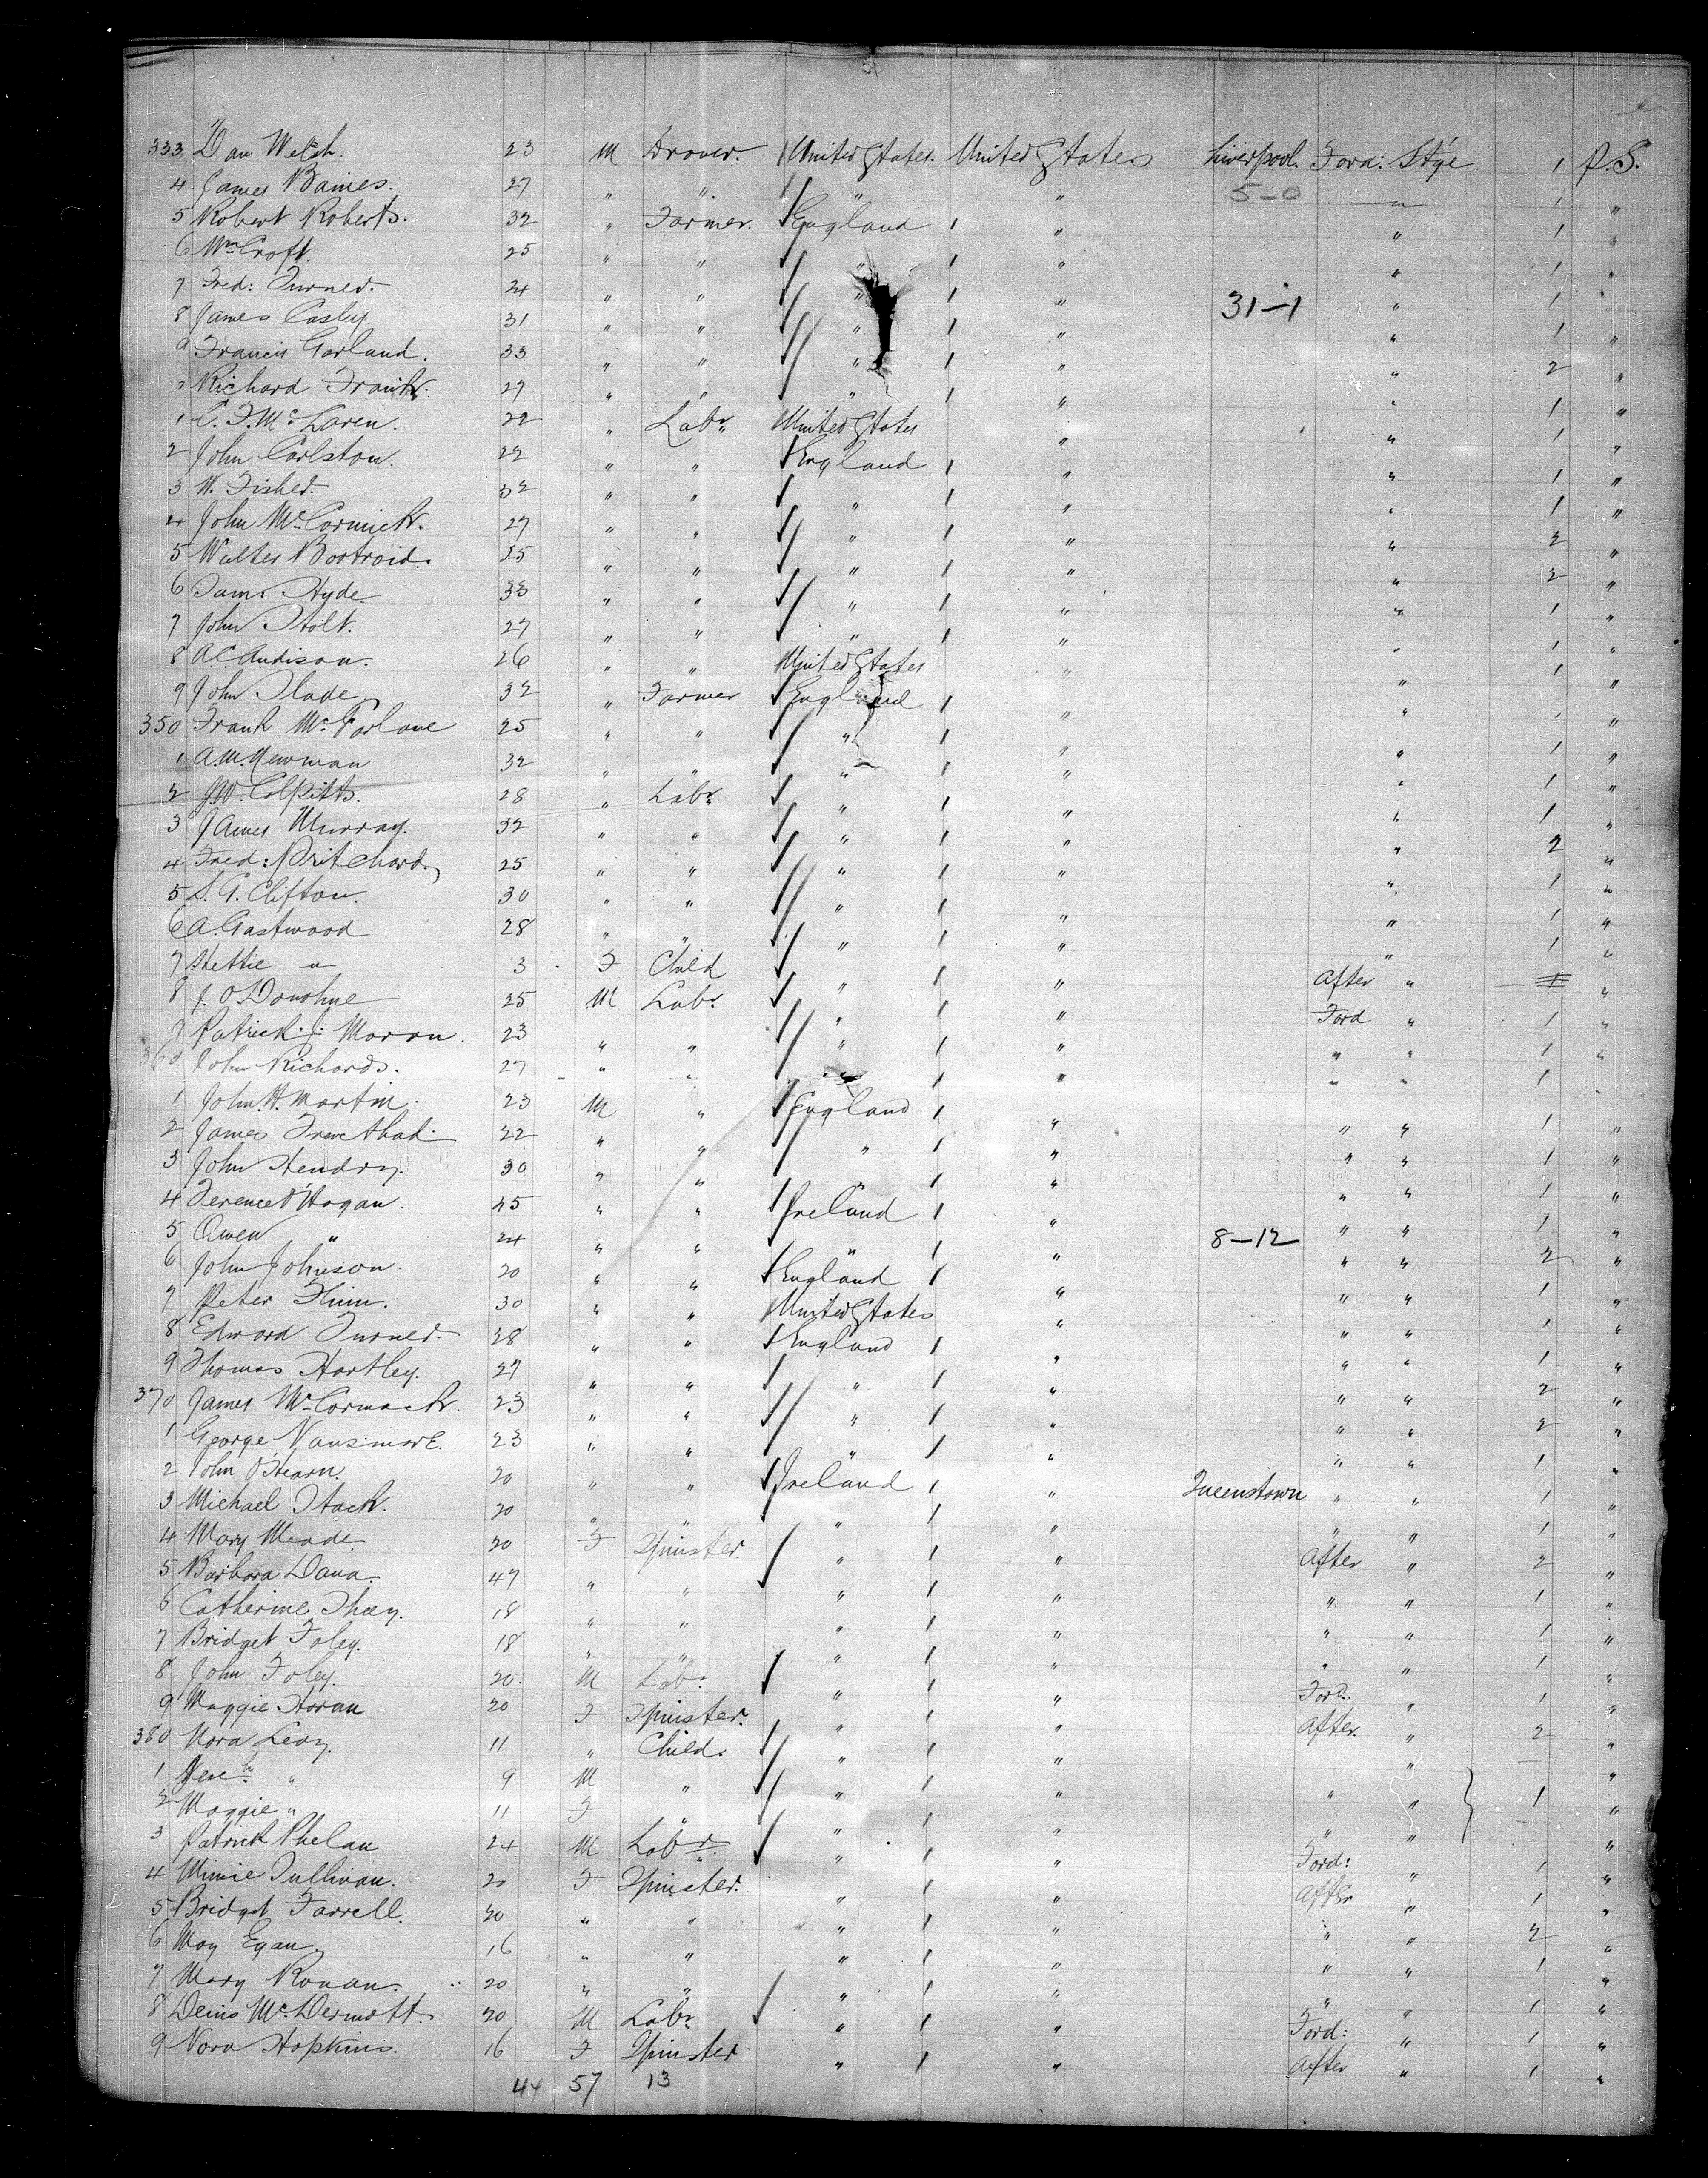 333 Dan Welch. 23 M Drover. United States. United States Liverpool. Forw: St'ge 1 P.S.
4 James Baines. 27 " " " " 5-0 " 1 "
5 Robert Roberts. 32 " Farmer. England 1 " " 1 "
6 Wm Croft. 25 " " " 1 " " 1 "
7 Fred: Turner. 24 " " " 1 " 31-1 " 1 "
8 James Casley 31 " " " 1 " " 1 "
9 Francis Garland. 33 " " " 1 " " 2 "
Richard Frank. 27 " " " 1 " " 1 "
1 C. F. McLaren. 22 " Labr. United States " " 1 "
2 John Carlston. 22 " " England 1 " " 1 "
3 W. Fisher. 32 " " " 1 " " 1 "
4 John McCormick. 27 " " " 1 " " 2 "
5 Walter Bootroid. 25 " " " 1 " " 2 "
6 Sam: Hyde. 33 " " " 1 " " 1 "
7 John Stolt. 27 " " " 1 " " 1 "
8 A.C. Andison. 26 " " United States " " 1 "
9 John Slade 32 " Farmer England 1 " " 1 "
350 Frank McFarlane 25 " " " 1 " " 1 "
1 A.M. Newman 32 " " " 1 " " 1 "
2 J.W. Colpitts. 28 " Labr. " 1 " " 1 "
3 James Murray. 32 " " " 1 " " 2 "
4 Fred: Pritchard. 25 " " " 1 " " 1 "
5 S. G. Clifton. 30 " " " 1 " " 1 "
6 A. Gastwood 28 " " " 1 " " 1 "
7 Hettie " 3 F Child " 1 " After " "
8 J. O'Donohue 25 M Labr. " 1 " Ford " 1 "
9 Patrick J. Moran. 23 " " " 1 " " " 1 "
360 John Richards. 27 " " " 1 " " " 1
1 John H. Martin. 23 M " England 1 " " " 1 "
2 James 22 " " " 1 " " " 1 "
3 John Hendry. 30 " " " " " " 1 "
4 Terence O'Hogan. 25 " " Ireland 1 " " " 1 "
5 Owen " 24 " " " 1 " 8-12 " " 2 "
6 John Johnson. 20 " " England 1 " " " 1 "
7 Peter Flinn. 30 " " United States " " " 1 "
8 Edward Turner. 28 " " England 1 " " " 1 "
9 Thomas Hartley. 27 " " " 1 " " " 2 "
370 James McCormack. 23 " " " 1 " " " 2 "
1 George Vansmore. 23 " " " 1 " " " 1 "
2 John O'Hearn. 20 " " Ireland 1 " Queenstown " " 1 "
3 Michael Stack. 20 " " " 1 " " " 1 "
4 Mary Meade. 20 F Spinster. " 1 " After " 2 "
5 Barbara Dana. 47 " " " 1 " " " 1 "
6 Catherine Shay. 18 " " " 1 " " " 1 "
7 Bridget Foley. 18 " " " 1 " " " 1 "
8 John Foley. 20. M Labr. " 1 " Ford. " 1 "
9 Maggie Horan 20 F Spinster. " 1 " After. " 2 "
380 Nora Leoy. 11 " Child. " 1 " " — "
1 Jereh " 9 M " " 1 " " " 1 "
2 Maggie " 11 F " " 1 " " " — "
3 Patrick Phelan 24 M Labr. " 1 " Ford: " 1 "
4 Minie Sullivan. 20 F Spinster. " 1 " After " 1 "
5 Bridget Farrell. 20 " " " 1 " " " 2 "
6 May Egan. 16 " " " 1 " " " 1 "
7 Mary Ronan. 20 " " " 1 " " " 1 "
8 Denis McDermott. 20 M Labr. " 1 " Ford: " 1 "
9 Nora Hopkins. 16 F Spinster " 1 " After " 1 "
44 57 13